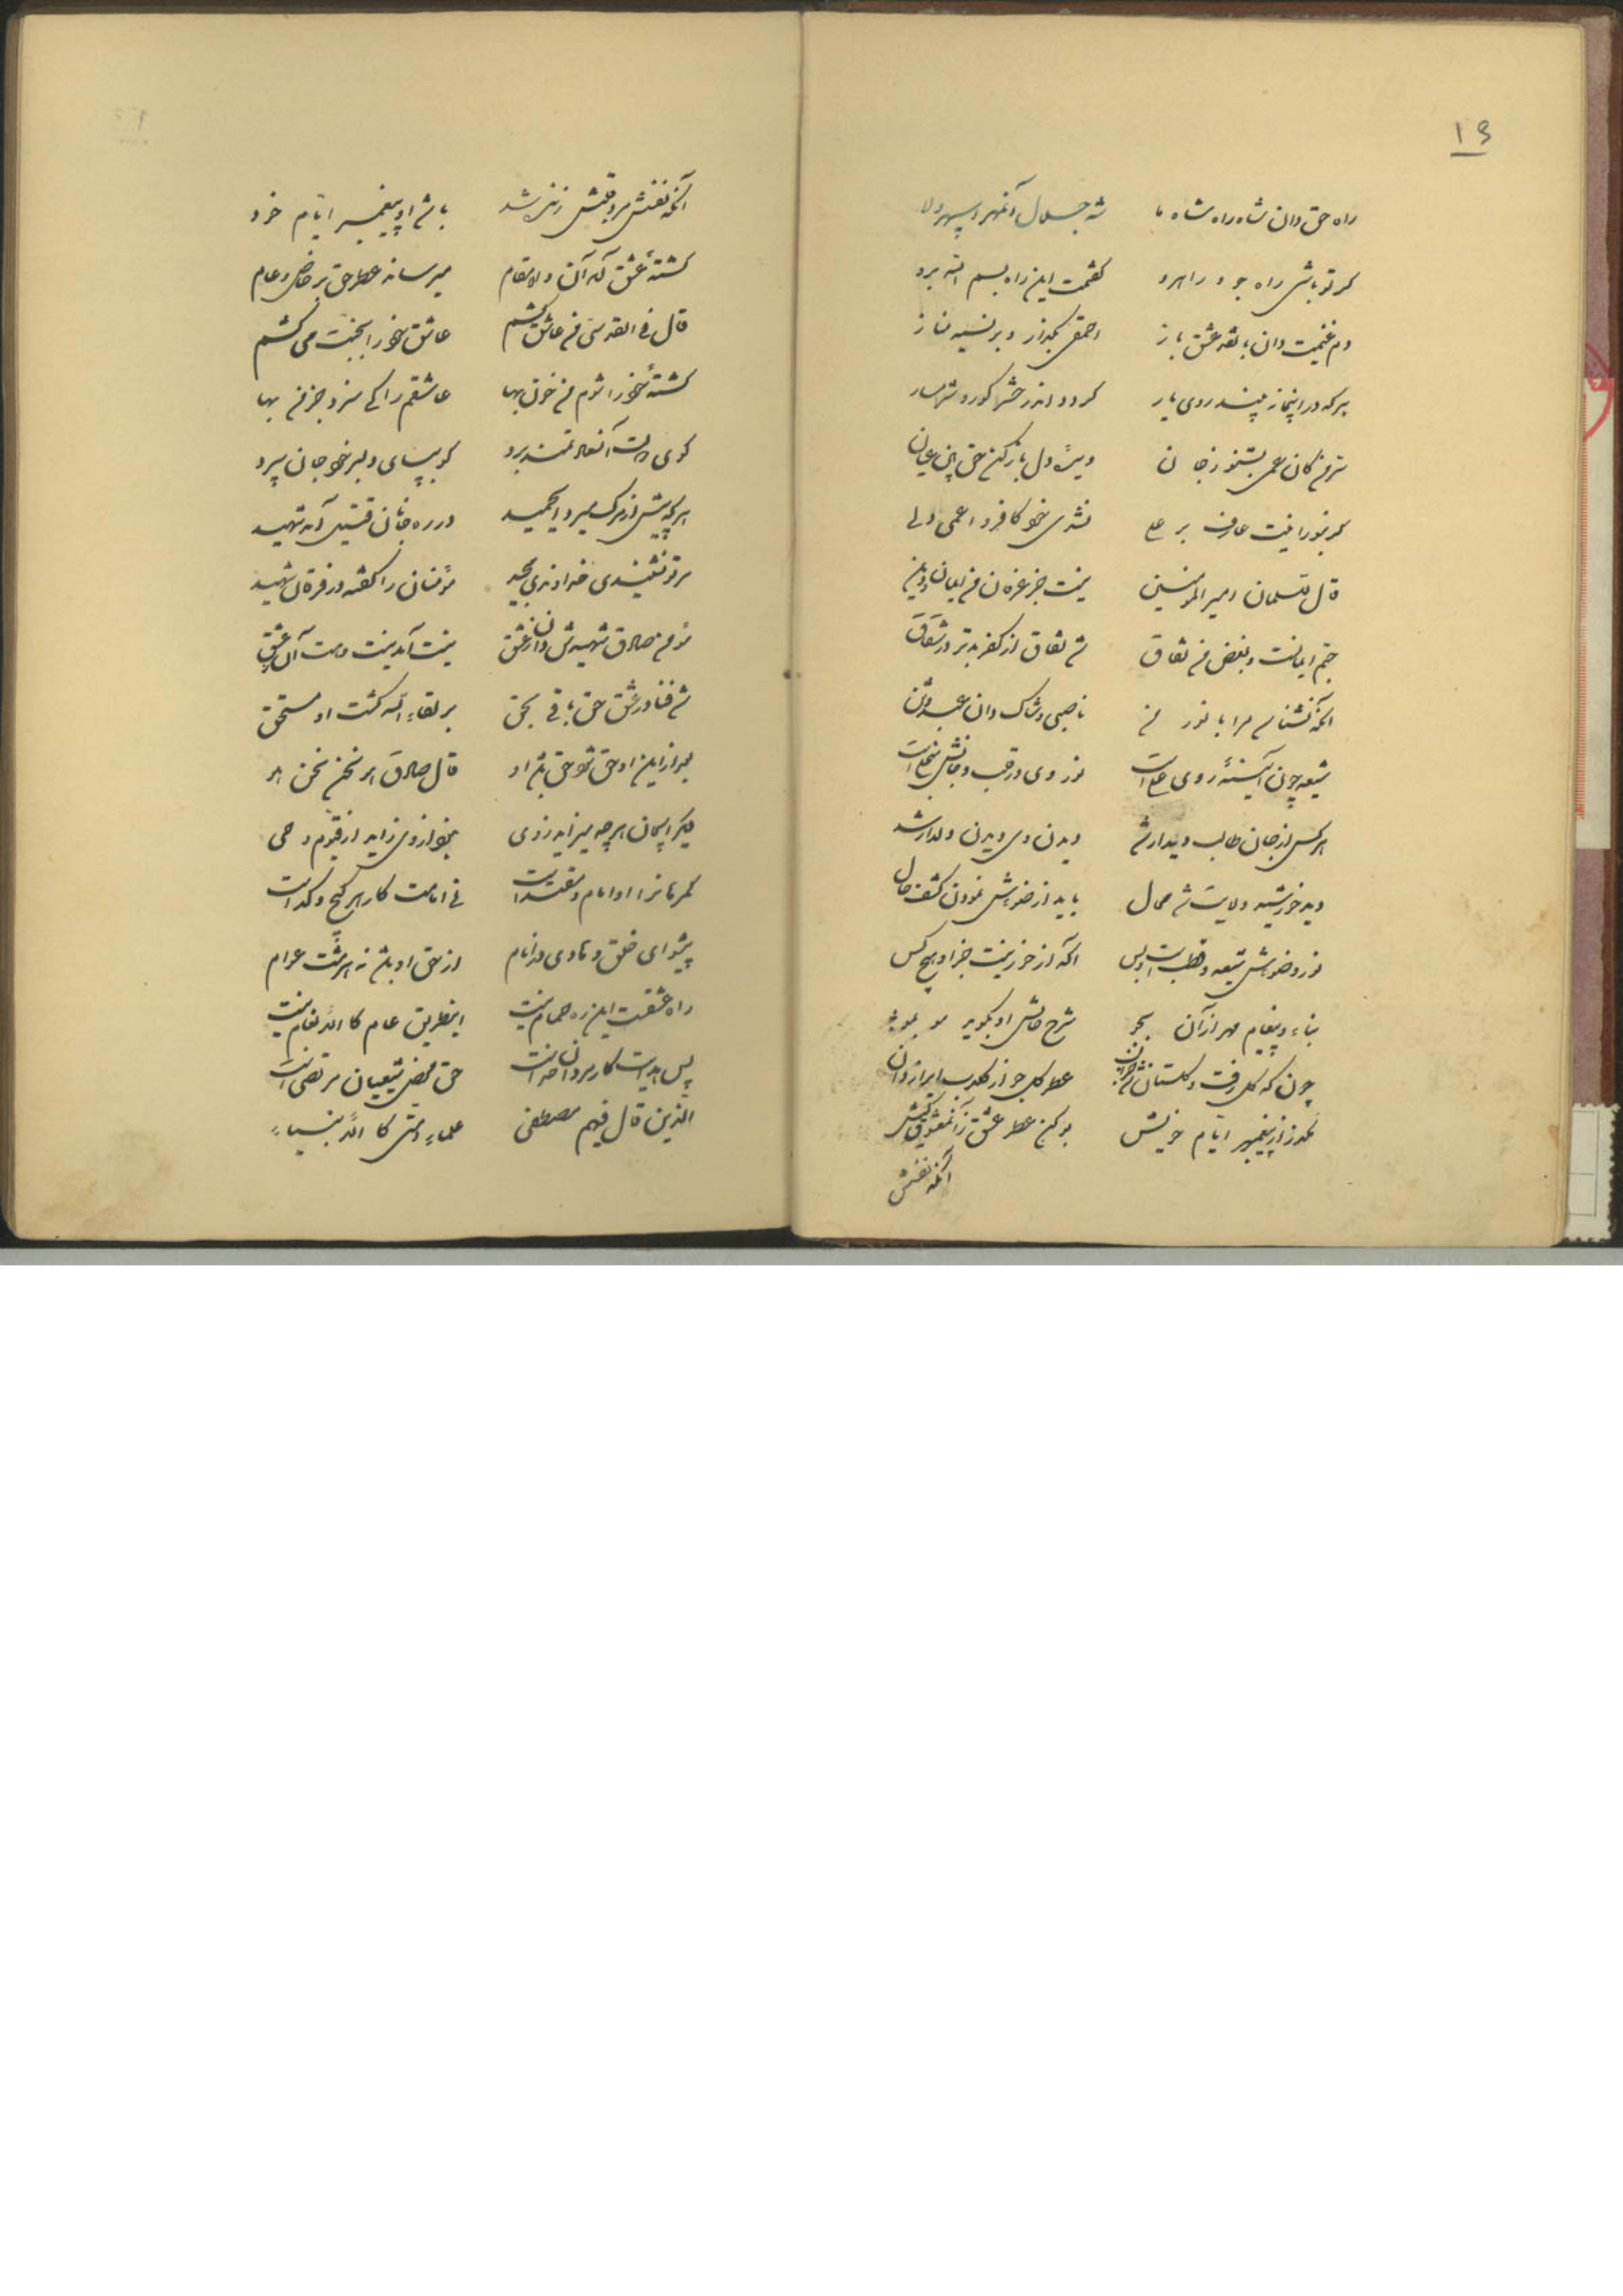 ۱۶
راه حق دان شاه راه شاه ما شه جلال آنمهر سپهر ولا
گر تو باشی راه جو و راهرو گفتمت این راه بسم الله برو
دم غنیمت دان بنقد عشق باز احمقی بگذار و بر نسیه مناز
هر که در اینجا نه بیند روی یار گردد اندر حشر کور و شرمسار
سر من کان عمی بشنو ز جان دیدهٔ دل باز کن حق بین عیان
گر بنورانیت عارف بر علی نشدی خود کافر و اعمی دلی
قال سلمان امیر المؤمنین نیست جز عرفان من ایمان و دین
حبم ایمانست و بغض من نفاق شد نفاق از کفر بدتر در شقاق
آنکه نشناسد مرا با نور من ناصبی و شاک دان عبد وثن
شیعه چون آئینهٔ روی علی است نور وی در قلب و جانش منجلی است
هر کس از جان طالب دیدار شد دیدن وی دیدن دلدار شد
دید خورشید ولایت شد محال باید از ضویش نمودن کشف حال
نور و ضویش شیعه و قطب است و بس آگه از خور نیست جز او هیچ کس
بناء و پیغام مهر از آن بجو شرح حالش او بگوید مو بمو
چون که گل رفت و گلستان شد خراب عطر گل جو از گلاب ایراز دان
مگذر از پیغمبر ایام خویش بو کن عطر عشق زآنمعشوق کیش
آنکه نفسش
آنکه نفسش مرد و قلبش زنده شد باشد او پیغمبر ایام خود
کشتهٔ عشق که آن والامقام میرساند عطر حق بر خاص و عام
قال فی القدسی من عاشق کشم عاشق خود را بجنت می کشم
کشتهٔ خود را شوم من خون بها عاشقم را کی سزد جز من بها
گوی دولت آنسعادتمند برد کو بپای دلبر خود جان سپرد
هر که پیش از مرگ میرد ای حمید در ره جانان قتیل آمد شهید
مر تو نشنیدی خداوند مجید مؤمنان را گفته در قرآن شهید
مؤمن صادق شهیدش دان ز عشق نیست آمد نیست هست آن ز عشق
شد فنا در عشق حق باقی بحق بر لقاء الله گشت او مستحق
بعد از این او حق شود حق باشد او قال صادق هو نحن نحن هو
دیگر ایجان هر چه میزاید ز وی نیز از وی زاید از قیوم و حی
گمرهان را او امام و مقتداست نی امامت کار هر گیج و گداست
پیشوای خلق و هادی در انام از حق او باشد نه از مشت عوام
راه عشقست این ره حمام نیست اینطریق عام کالانعام نیست
پس هدایت کار مردان خداست حق محض شیعیان مرتضی است
الذین قال فیهم مصطفی علماء امتی کالانبیاء